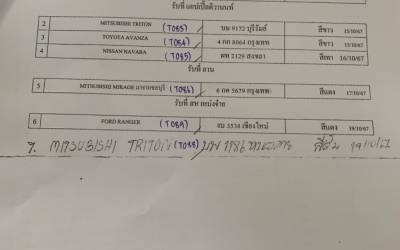 รับที่ แอปเปิ้ลติวานนท์
2 MITSUBISHI TRITON (T085) บน 9172 บุรีรัมย์ สีขาว 15/10/67
3 TOYOTA AVANZA (T084) 4 กก 8064 กรุงเทพ สีขาว 15/10/67
4 NISSAN NAVARA (T085) ผท 2129 สงขลา สีเทา 16/10/67
รับที่ ลาน
5 MITSUBISHI MIRAGE (T086) 6 กต 5679 กรุงเทพ สีแดง 17/10/67
รับที่
6 FORD RANGER (T089) งน 5538 เชียงใหม่ สีแดง 19/10/67
7. MITSUBISHI TRITON (T088) 19/10/67